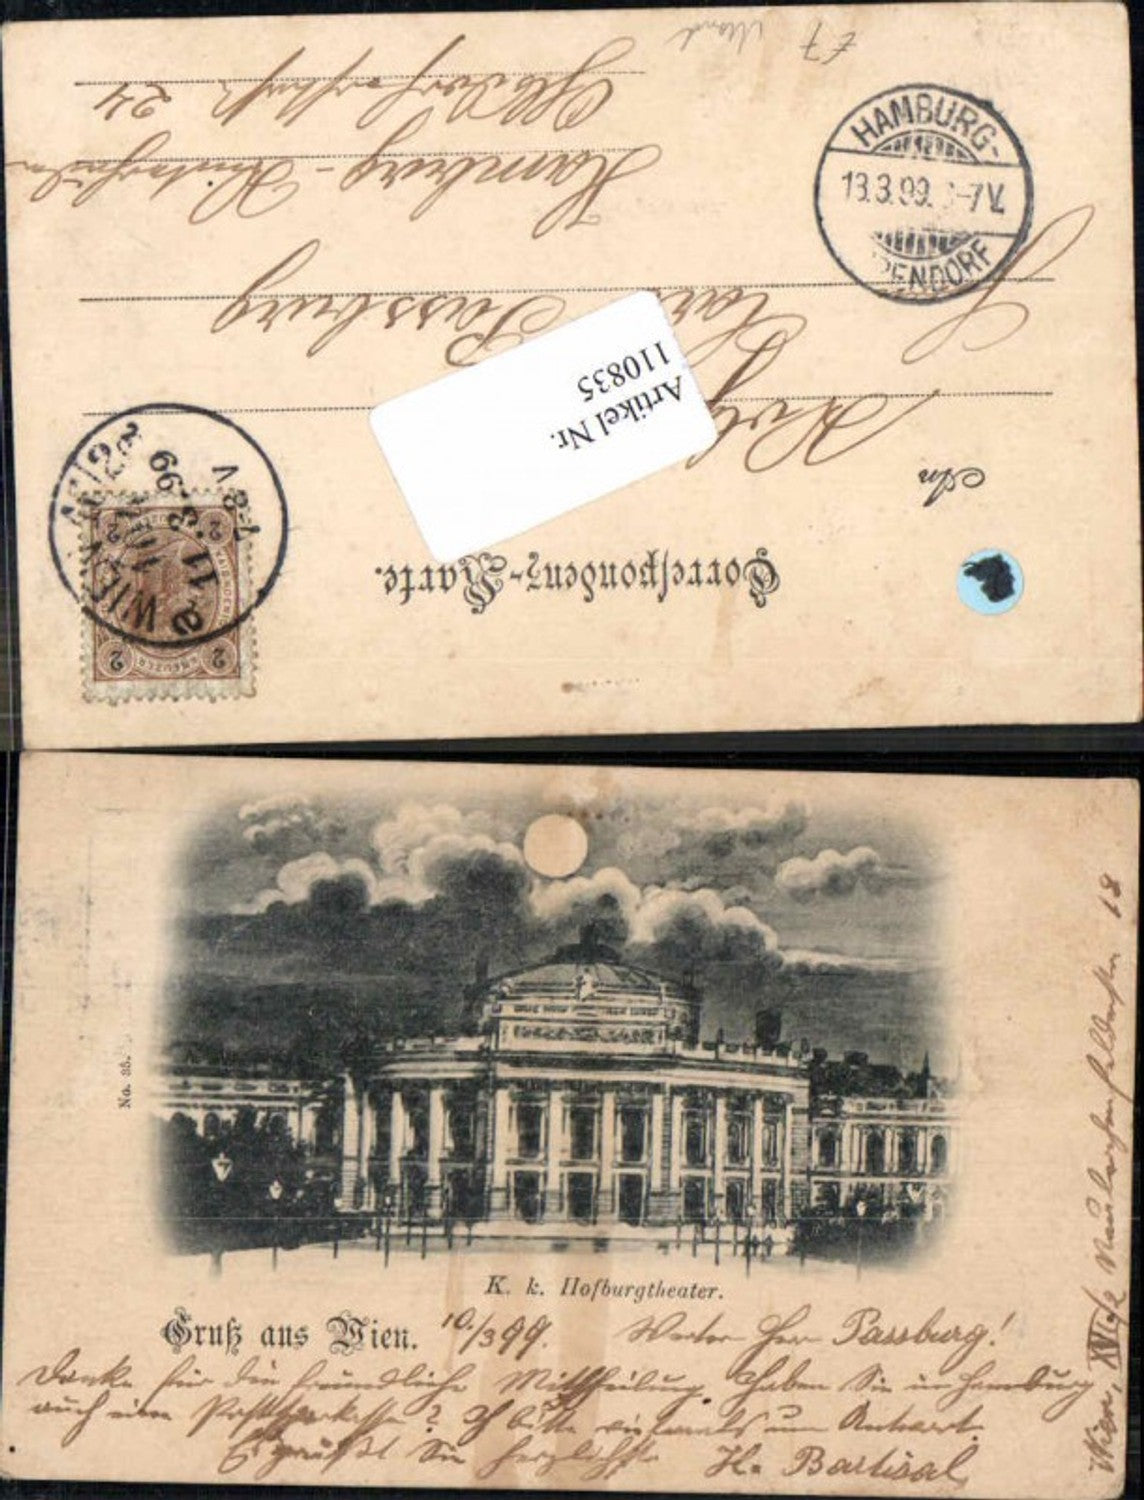 Correspondenz-Karte.
An
Passburg
Hamburg-
24
Artikel Nr.
110835
HAMBURG-
13.3.99. -7V.
PENDORF
WIEN
11.3.99
7-8 V
2 KREUZER 2
No. 35.
K. k. Hofburgtheater.
Gruß aus Wien. 10./3 99. Werter Herr Passburg!
Danke für die freundliche Mittheilung. Haben Sie in Hamburg
auch eine Postsparkasse? Ich bitte vielmals um Antwort.
Es grüßt Sie herzlichst H. Bartisal
Wien, XVI/2 Neulerchenfelderstr 18